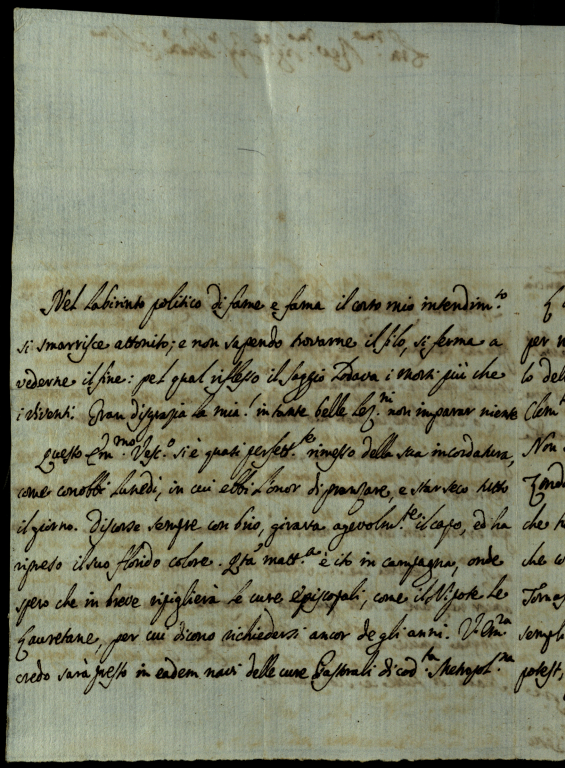 Nel Labirinto politico di fame e fama il corto mio intendim.to
si smarrisce attonito; e non sapendo trovarne il filo, si ferma a
vederne il fine: pel qual riflesso il Saggio Lodava i morti più che
i viventi. Gran disgrazia la mia! in tante belle Lez.ni non imparar niente
Questo Em.mo Vesc.o si è quasi perfett.te rimesso della sua incordatura,
come conobbi Lunedì, in cui ebbi l'onor di pranzare, e star seco tutto
il giorno. Discorse sempre con brio, girava agevolm.te il capo, ed ha
ripreso il suo florido colore. Q.ta matt.a è ito in campagna, onde
spero che in breve ripiglierà le cure episcopali, come il Nipote le
Lauretane, per cui dicono richiedersi ancor degli anni. V. Em.za
credo sarà presto in eadem navi delle cure Pastorali di cod.ta Metropol.na
per
lo
Clem
Non
che
che
semp
potest,